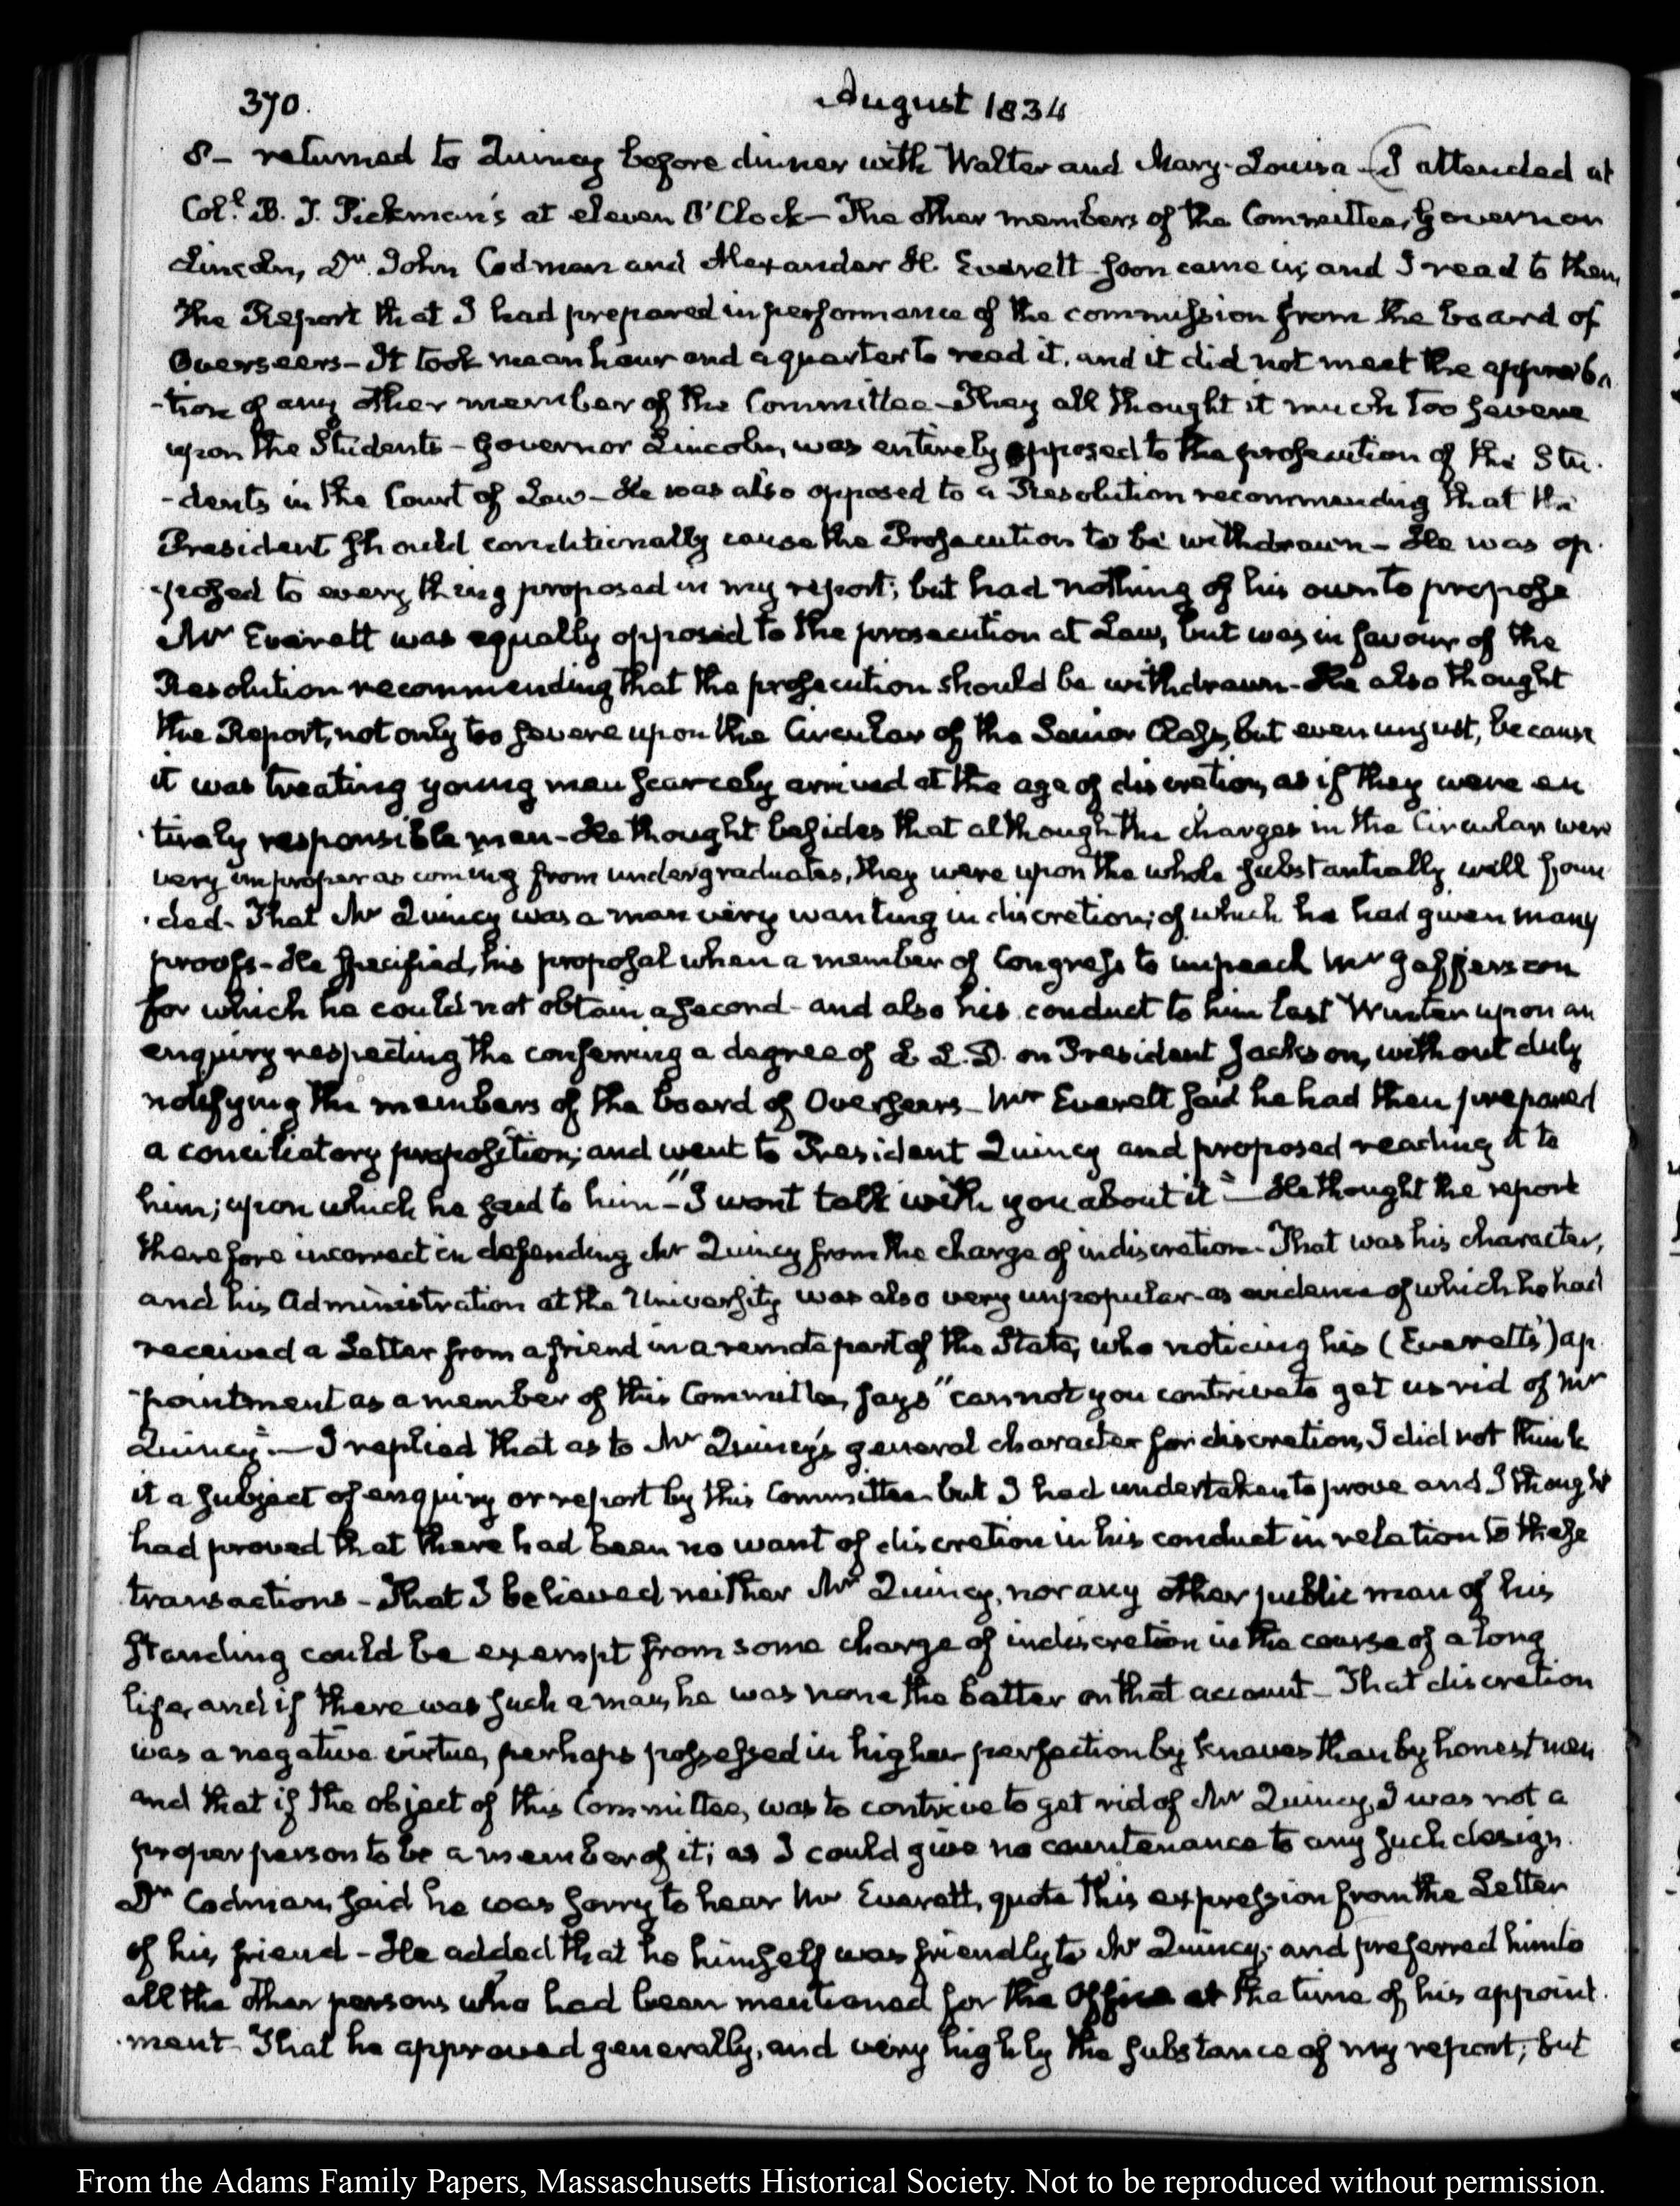 370.
August 1834
8- returned to Quincy before dinner with Walter and Mary-Louisa - (I attended at
Col.l B. T. Pickman's at eleven O'Clock - The other members of the Committee, Governor
Lincoln, Dr. John Codman and Alexander H. Everett soon came in, and I read to them
the Report that I had prepared in performance of the commission from the board of
Overseers - It took me an hour and a quarter to read it, and it did not meet the approba
-tion of any other member of the Committee - They all thought it much too severe
upon the Students - Governor Lincoln, was entirely opposed to the prosecution of the Stu.
-dents in the Court of Law - He was also opposed to a Resolution recommending that the
President should conditionally cause the Prosecution to be withdrawn - He was op.
-posed to every thing proposed in my report; but had nothing of his own to propose
Mr Everett was equally opposed to the prosecution at Law, but was in favour of the
Resolution recommending that the prosecution should be withdrawn - He also thought
the Report, not only too severe upon the Circular of the Senior Class, but even unjust, because
it was treating young men scarcely arrived at the age of discretion, as if they were en
-tirely responsible men - He thought besides that although the charges in the Circular were
very improper as coming from undergraduates, they were upon the whole substantially well foun
-ded - That Mr Quincy was a man very wanting in discretion; of which he had given many
proofs - He specified, his proposal when a member of Congress to impeach Mr Jefferson
for which he could not obtain a second - and also his conduct to him last Winter upon an
enquiry respecting the conferring a degree of L. L. D. on President Jackson, without duly
notifying the members of the board of Overseers - Mr Everett said he had then prepared
a conciliatory proposition; and went to President Quincy and proposed reading it to
him; upon which he said to him - "I wont talk with you about it" - He thought the report
therefore incorrect in defending Mr Quincy from the charge of indiscretion - That was his character,
and his Administration at the University was also very unpopular - as evidence of which he had
received a Letter from a friend in a remote part of the State, who noticing his (Everett's) ap.
-pointment as a member of this Committee, says "cannot you contrive to get us rid of Mr
Quincy" - I replied that as to Mr Quincy's general character for discretion, I did not think
it a subject of enquiry or report by this Committee - but I had undertaken to prove and I thought
had proved that there had been no want of discretion in his conduct in relation to these
transactions - That I believed neither Mr Quincy, nor any other public man of his
standing could be exempt from some charge of indiscretion in the course of a long
life, and if there was such a man, he was none the better on that account - That discretion
was a negative virtue, perhaps possessed in higher perfection by knaves than by honest men
and that if the object of this Committee, was to contrive to get rid of Mr Quincy, I was not a
proper person to be a member of it; as I could give no countenance to any such design.
Dr Codman, said he was sorry to hear Mr Everett, quote this expression from the Letter
of his friend - He added that he himself was friendly to Mr Quincy; and preferred him to
all the other persons who had been mentioned for the Office at the time of his appoint.
-ment - That he approved generally, and very highly the substance of my report; but
From the Adams Family Papers, Massachusetts Historical Society. Not to be reproduced without permission.